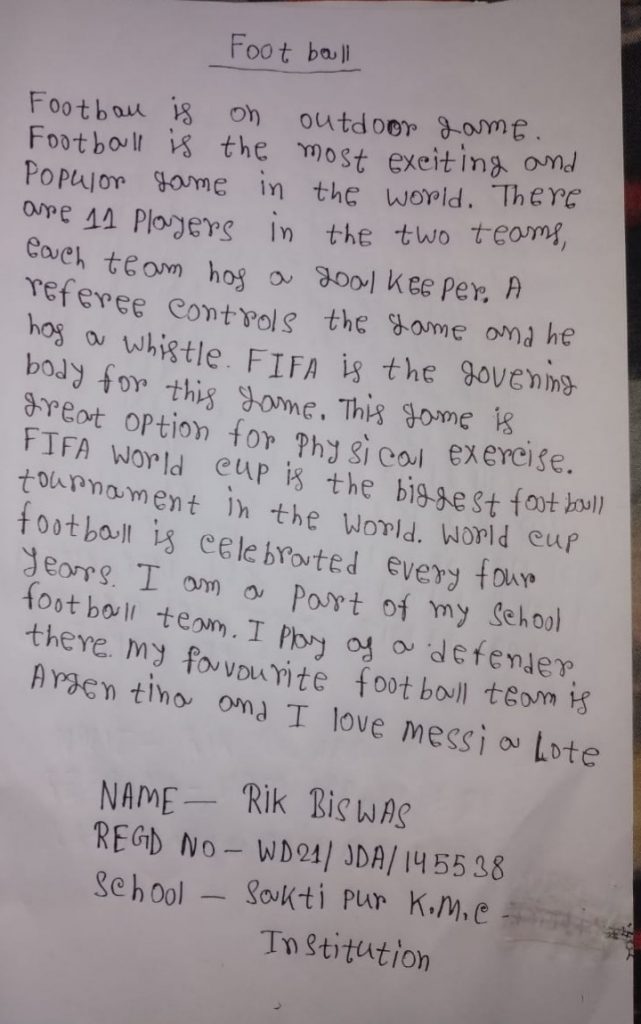 Foot ball
Football is on outdoor game.
Football is the most exciting and
Popular game in the world. There
are 11 Players in the two teams,
each team has a goal Keeper. A
referee controls the game and he
has a whistle. FIFA is the govening
body for this game. This game is
great option for Physical exercise.
FIFA World cup is the biggest foot ball
tournament in the World. World cup
football is celebrated every four
years. I am a part of my School
football team. I Play as a defender
there. my favourite foot ball team is
Argen tina and I love messi a Lote
NAME — Rik BISWAS
REGD NO – WD21/ JDA/ 145538
School — Sakti pur K.M.C -
Institution